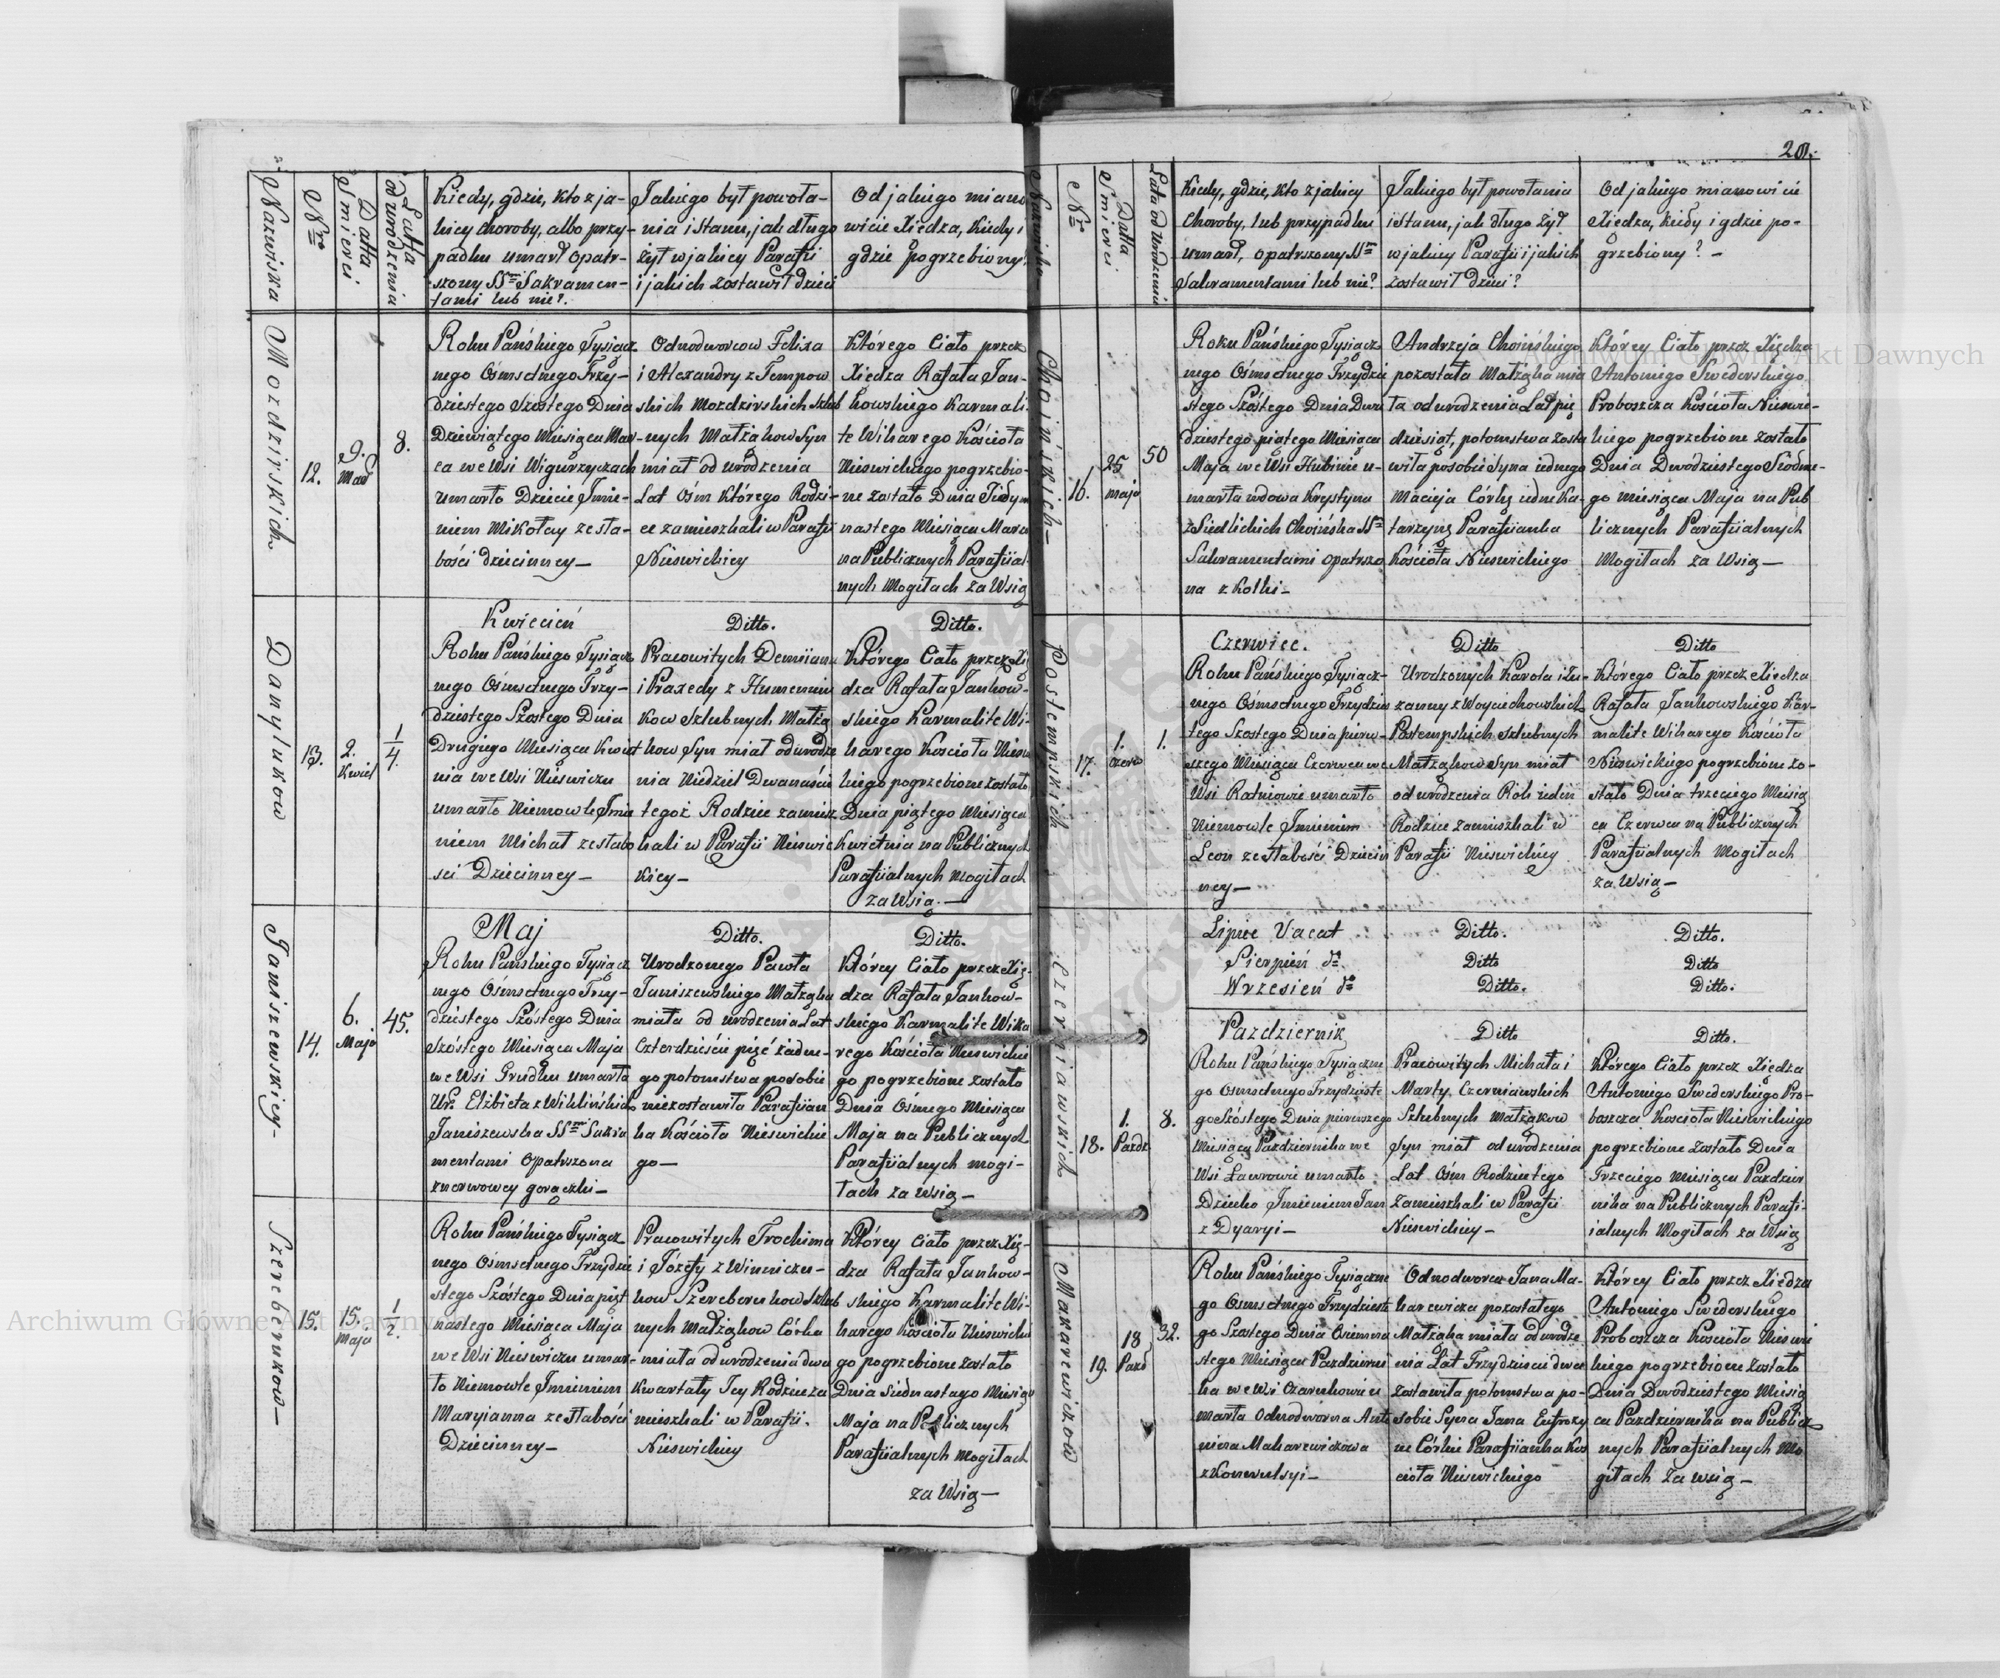 20.
Nazwiska
Nro
Datta Smierci
Latta od urodzenia
Kiedy, gdzie, kto z ja-
kiey choroby, albo przy-
padku umarł opatr-
zony SSmi Sakramen-
tami lub nie?
Jakiego był powoła-
nia i stanu, jak długo
żył w jakiey Parafii
i jakich zostawił dzieci
Od jakiego miano
wicie Xiędza, kiedy i
gdzie pogrzebiony?
Mozdzirskich
12.
9. Mar
8.
Roku Pańskiego Tysiącz
nego Ośmsetnego Trzy-
dziestego Szostego Dnia
Dziewiątego Miesiąca Mar-
ca we Wsi Wigurzyczach
umarło Dziecie Imie-
niem Mikołay ze sła-
bości dziecinney—
Odnodworcow Felixa
i Alexandry z Tempow
skich Mozdzirskich Szlub
nych Małżąkow Syn
miał od urodzenia
Lat Ośm którego Rodzi-
ce zamieszkali w Parafii
Nieswickiey
Którego Ciało przez
Xiędza Rafała Jan-
kowskiego Karmali-
te Wikarego Kościoła
Nieswickiego pogrzebio-
ne zostało Dnia Siedym
nastego Miesiąca Marca
na Publicznych Parafiial-
nych Mogiłach za Wsią
Danylukow
13.
2. Kwiet
1/4
Kwiecień
Roku Pańskiego Tysiącz
nego Ośmsetnego Trzy-
dziestego Szostego Dnia
Drugiego Miesiąca Kwiet
nia we Wsi Nieswiczu
umarło Niemowle Imie
niem Michał ze słabo
sci Dziecinney—
Ditto.
Pracowitych Demiiana
i Praxedy z Humeniu
kow Szlubnych Małżą
kow Syn miał od urodze
nia Niedziel Dwanaście
tegoż Rodzice zamiesz
kali w Parafii Nieswic
kiey—
Ditto.
Którego Ciało przez Xię
dza Rafała Jankow-
skiego Karmalite Wi-
karego Kościoła Niesw
kiego pogrzebione zostało
Dnia piątego Miesiąca
Kwietnia na Publicznych
Parafiialnych Mogiłach
za Wsią.—
Janiszewskiey-
14.
6. Maja
45.
Maj
Roku Pańskiego Tysiącz
nego Ośmsetnego Trzy-
dziestego Szóstego Dnia
Szóstego Miesiąca Maja
we Wsi Grudku umarła
Ur. Elżbieta z Wiklińskich
Janiszewska SSmi Sakra
mentami opatrzona
z nerwowey gorączki—
Ditto.
Urodzonego Pawła
Janiszewskiego Małżąka
miała od urodzenia Lat
Czterdzieście pięć żadne-
go potomstwa po sobie
niezostawiła Parafiian
ka Kościoła Nieswickie
go—
Ditto.
Którey Ciało przez Xię-
dza Rafała Jankow-
skiego Karmalite Wika
rego Kościoła Nieswickie
go pogrzebione zostało
Dnia Ośmego Miesiąca
Maja na Publicznych
Parafiialnych mogi-
łach za Wsią—
Szereberukow—
15.
15. Maja
1/2.
Roku Pańskiego Tysiącz
nego Ośmsetnego Trzydzie
stego Szóstego Dnia pięt
nastego Miesiąca Maja
we Wsi Nieswiczu umar-
ło Niemowle Imieniem
Maryianna ze słabości
Dziecinney—
Pracowitych Trochima
i Józefy z Winniczu-
kow Szereberukow Szlub
nych Małżąkow Córka
miała od urodzenia dwa
kwartały Jey Rodzice za
mieszkali w Parafii.
Nieswickiey
Którey Ciało przez Xię-
dza Rafała Jankow-
skiego Karmalite Wi-
karego Kościoła Nieswickie
go pogrzebione zostało
Dnia Siedmnastago Miesiąca
Maja na Publicznych
Parafiialnych Mogiłach
za Wsią—
Nazwiska
Nro
Datta Smierci
Lata od Urodzenia
Kiedy, gdzie, kto z jakiey
Choroby, lub przypadku
umarł, opatrzony SSmi
Sakramentami lub nie?
Jakiego był powołania
i stanu, jak długo żył
w jakiey Parafii i jakich
zostawił dzieci?
Od jakiego mianowicie
Xiedza, kiedy i gdzie po-
grzebiony? —
Choińskich—
16.
25 maja
50
Roku Pańskiego Tysiącz
nego Ośmsetnego Trzydzie
stego Szóstego Dnia Dwu
dziestego piątego Miesiąca
Maja we Wsi Hubinie u-
marła wdowa Krystyna
z Siedlickich Choińska SSmi
Sakramentami opatrzo
na z Kolki—
Andrzeja Choińskiego
pozostała Małżąka mia
ła od urodzenia Lat pię
dziesiąt, potomstwa zosta
wiła po sobie Syna iednego
Macieja Córkę iedne Ka-
tarzynę Parafiianka
Kościoła Nieswickiego
Którey Ciało przez Xiędza
Antoniego Swederskiego
Proboszcza Kościoła Nieswic-
kiego pogrzebione zostało
Dnia Dwodziestego Siodme-
go miesiąca Maja na Pub
licznych Parafiialnych
Mogiłach za Wsią—
Postempskich
17.
1. Czerw
1.
Czerwiec.
Roku Pańskiego Tysiącz-
nego Ośmsetnego Trzydzies
tego Szostego Dnia pierw-
szego Miesiąca Czerwca we
Wsi Ratniowie umarło
Niemowle Imieniem
Leon ze słabości Dziecin
ney—
Ditto
Urodzonych Karola i Zu-
zanny z Woyciechowskich
Postempskich szlubnych
Małżąkow Syn miał
od urodzenia Rok ieden
Rodzice zamieszkali w
Parafii Nieswickiey
Ditto
Którego Ciało przez Xiędza
Rafała Jankowskiego Kar-
malite Wikarego Kościoła
Nieswickiego pogrzebione zo-
stało Dnia trzeciego Miesią
ca Czerwca na Publicznych
Parafiialnych Mogiłach
za Wsią—
Lipiec Vacat
Ditto.
Ditto.
Sierpień do
Ditto
Ditto
Wrzesień do
Ditto.
Ditto.
Czerniawskich
18.
1. Pazdz
8.
Pazdziernik
Roku Pańskiego Tysiączne
go Osmsetnego Trzydzieste
go Szóstego Dnia pierwszego
Miesiąca Pazdziernika we
Wsi Ławrowie umarło
Dziecko Imieniem Jan
z Dyaryi—
Ditto
Pracowitych Michała i
Marty Czerniawskich
Szlubnych Małżąkow
Syn miał od urodzenia
Lat Ośm Rodzice tego
zamieszkali w Parafii
Nieswickiey—
Ditto.
Którego Ciało przez Xiędza
Antoniego Swederskiego Pro-
boszcza Kościoła Nieswickiego
pogrzebione zostało Dnia
Trzeciego Miesiąca Pazdzier
nika na Publicznych Parafi-
ialnych Mogiłach za Wsią
Makarewiczow
19.
18 Pazd
32.
Roku Pańskiego Tysiączne
go Osmsetnego Trzydzieste
go Szostego Dnia Osiemna
stego Miesiąca Pazdzierni
ka we Wsi Czarukowie u
marła Odnodworna Anto
nina Makarewiczowa
z Konwulsyi—
Odnodworca Jana Ma-
karewicza pozostałego
Małżąka miała od urodze
nia Lat Trzydzieści dwa
zostawiła potomstwa po-
sobie Syna Jana Eufrozy
ne Córkie Parafiianka Koś
cioła Nieswickiego
Którey Ciało przez Xiedza
Antoniego Swederskiego
Proboszcza Kościoła Nieswic
kiego pogrzebione zostało
Dnia Dwodziestego Miesią
ca Pazdziernika na Publicz
nych Parafiialnych Mo
giłach za wsią—
Archiwum Główne Akt Dawnych
Archiwum Główne Akt Dawnych